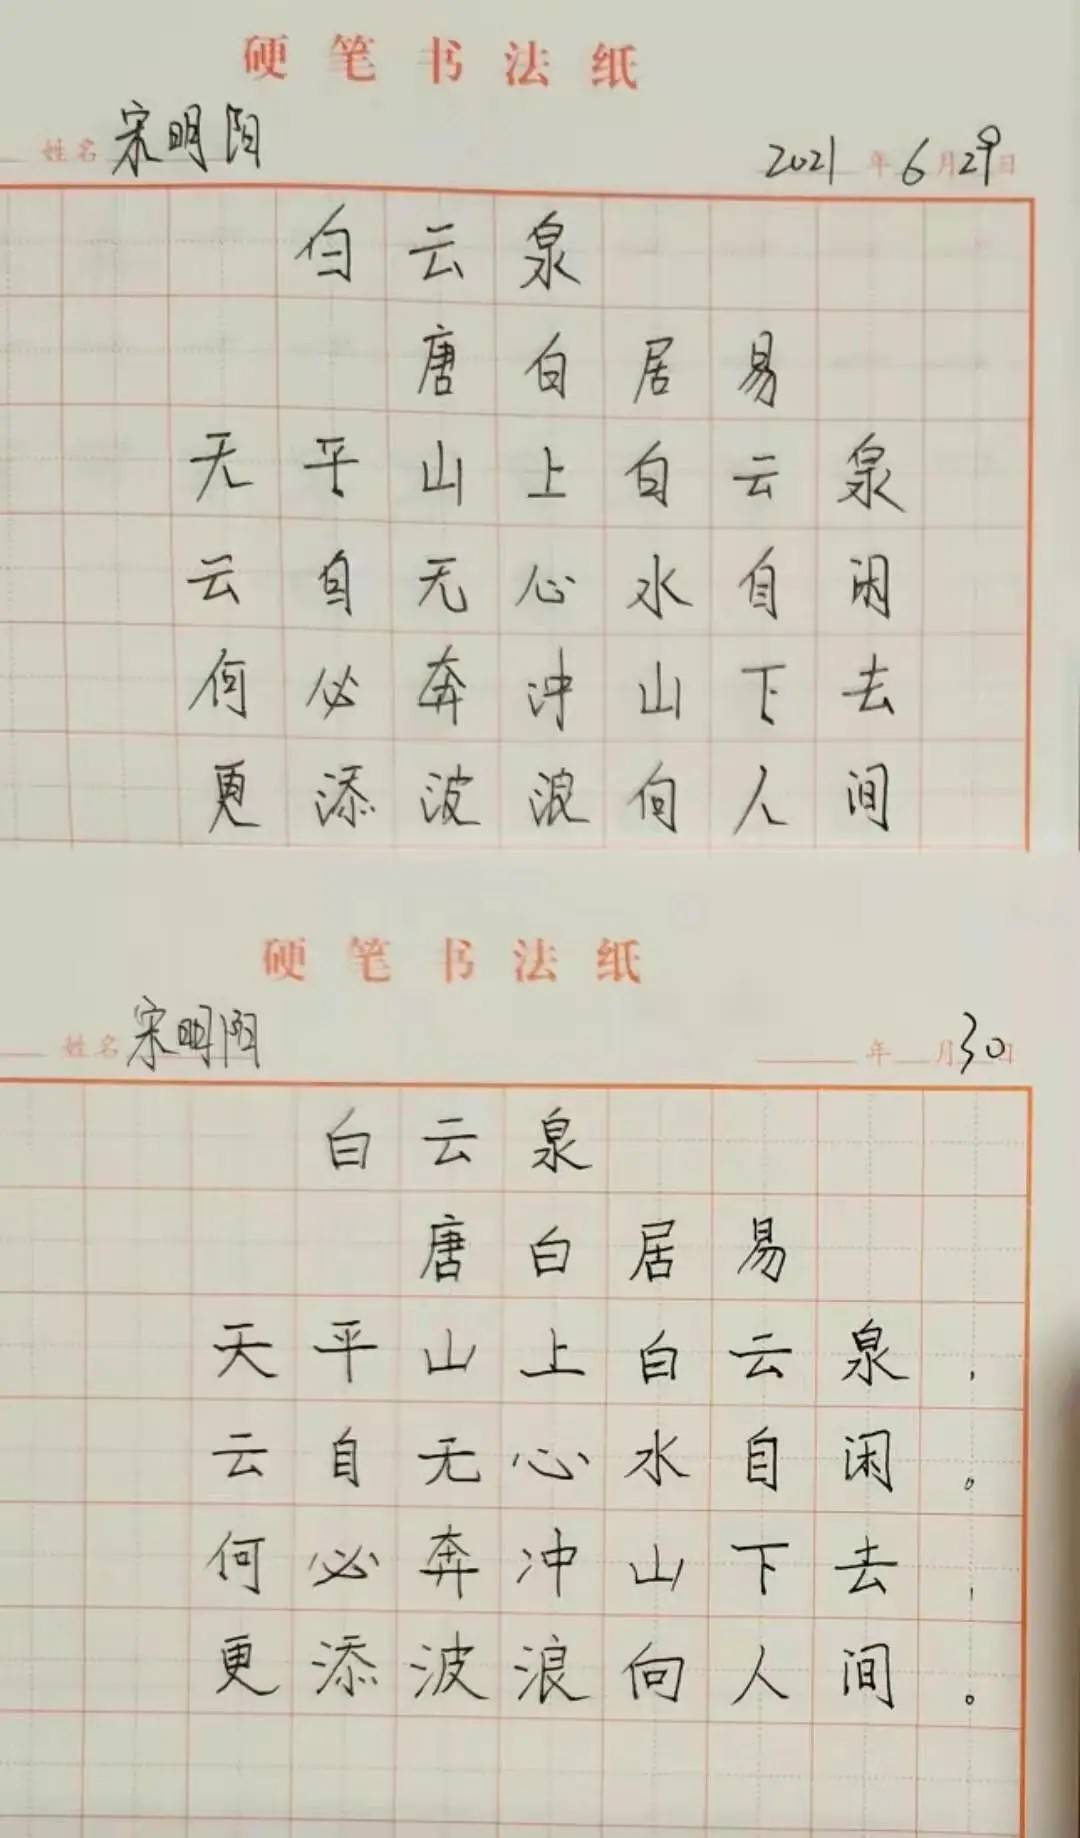 硬笔书法纸
姓名 宋明阳 2021年6月29日
白云泉
唐白居易
无平山上白云泉
云自无心水自闲
何必奔冲山下去
更添波浪向人间
硬笔书法纸
姓名 宋明阳 年 月30日
白云泉
唐白居易
天平山上白云泉，
云自无心水自闲。
何必奔冲山下去，
更添波浪向人间。